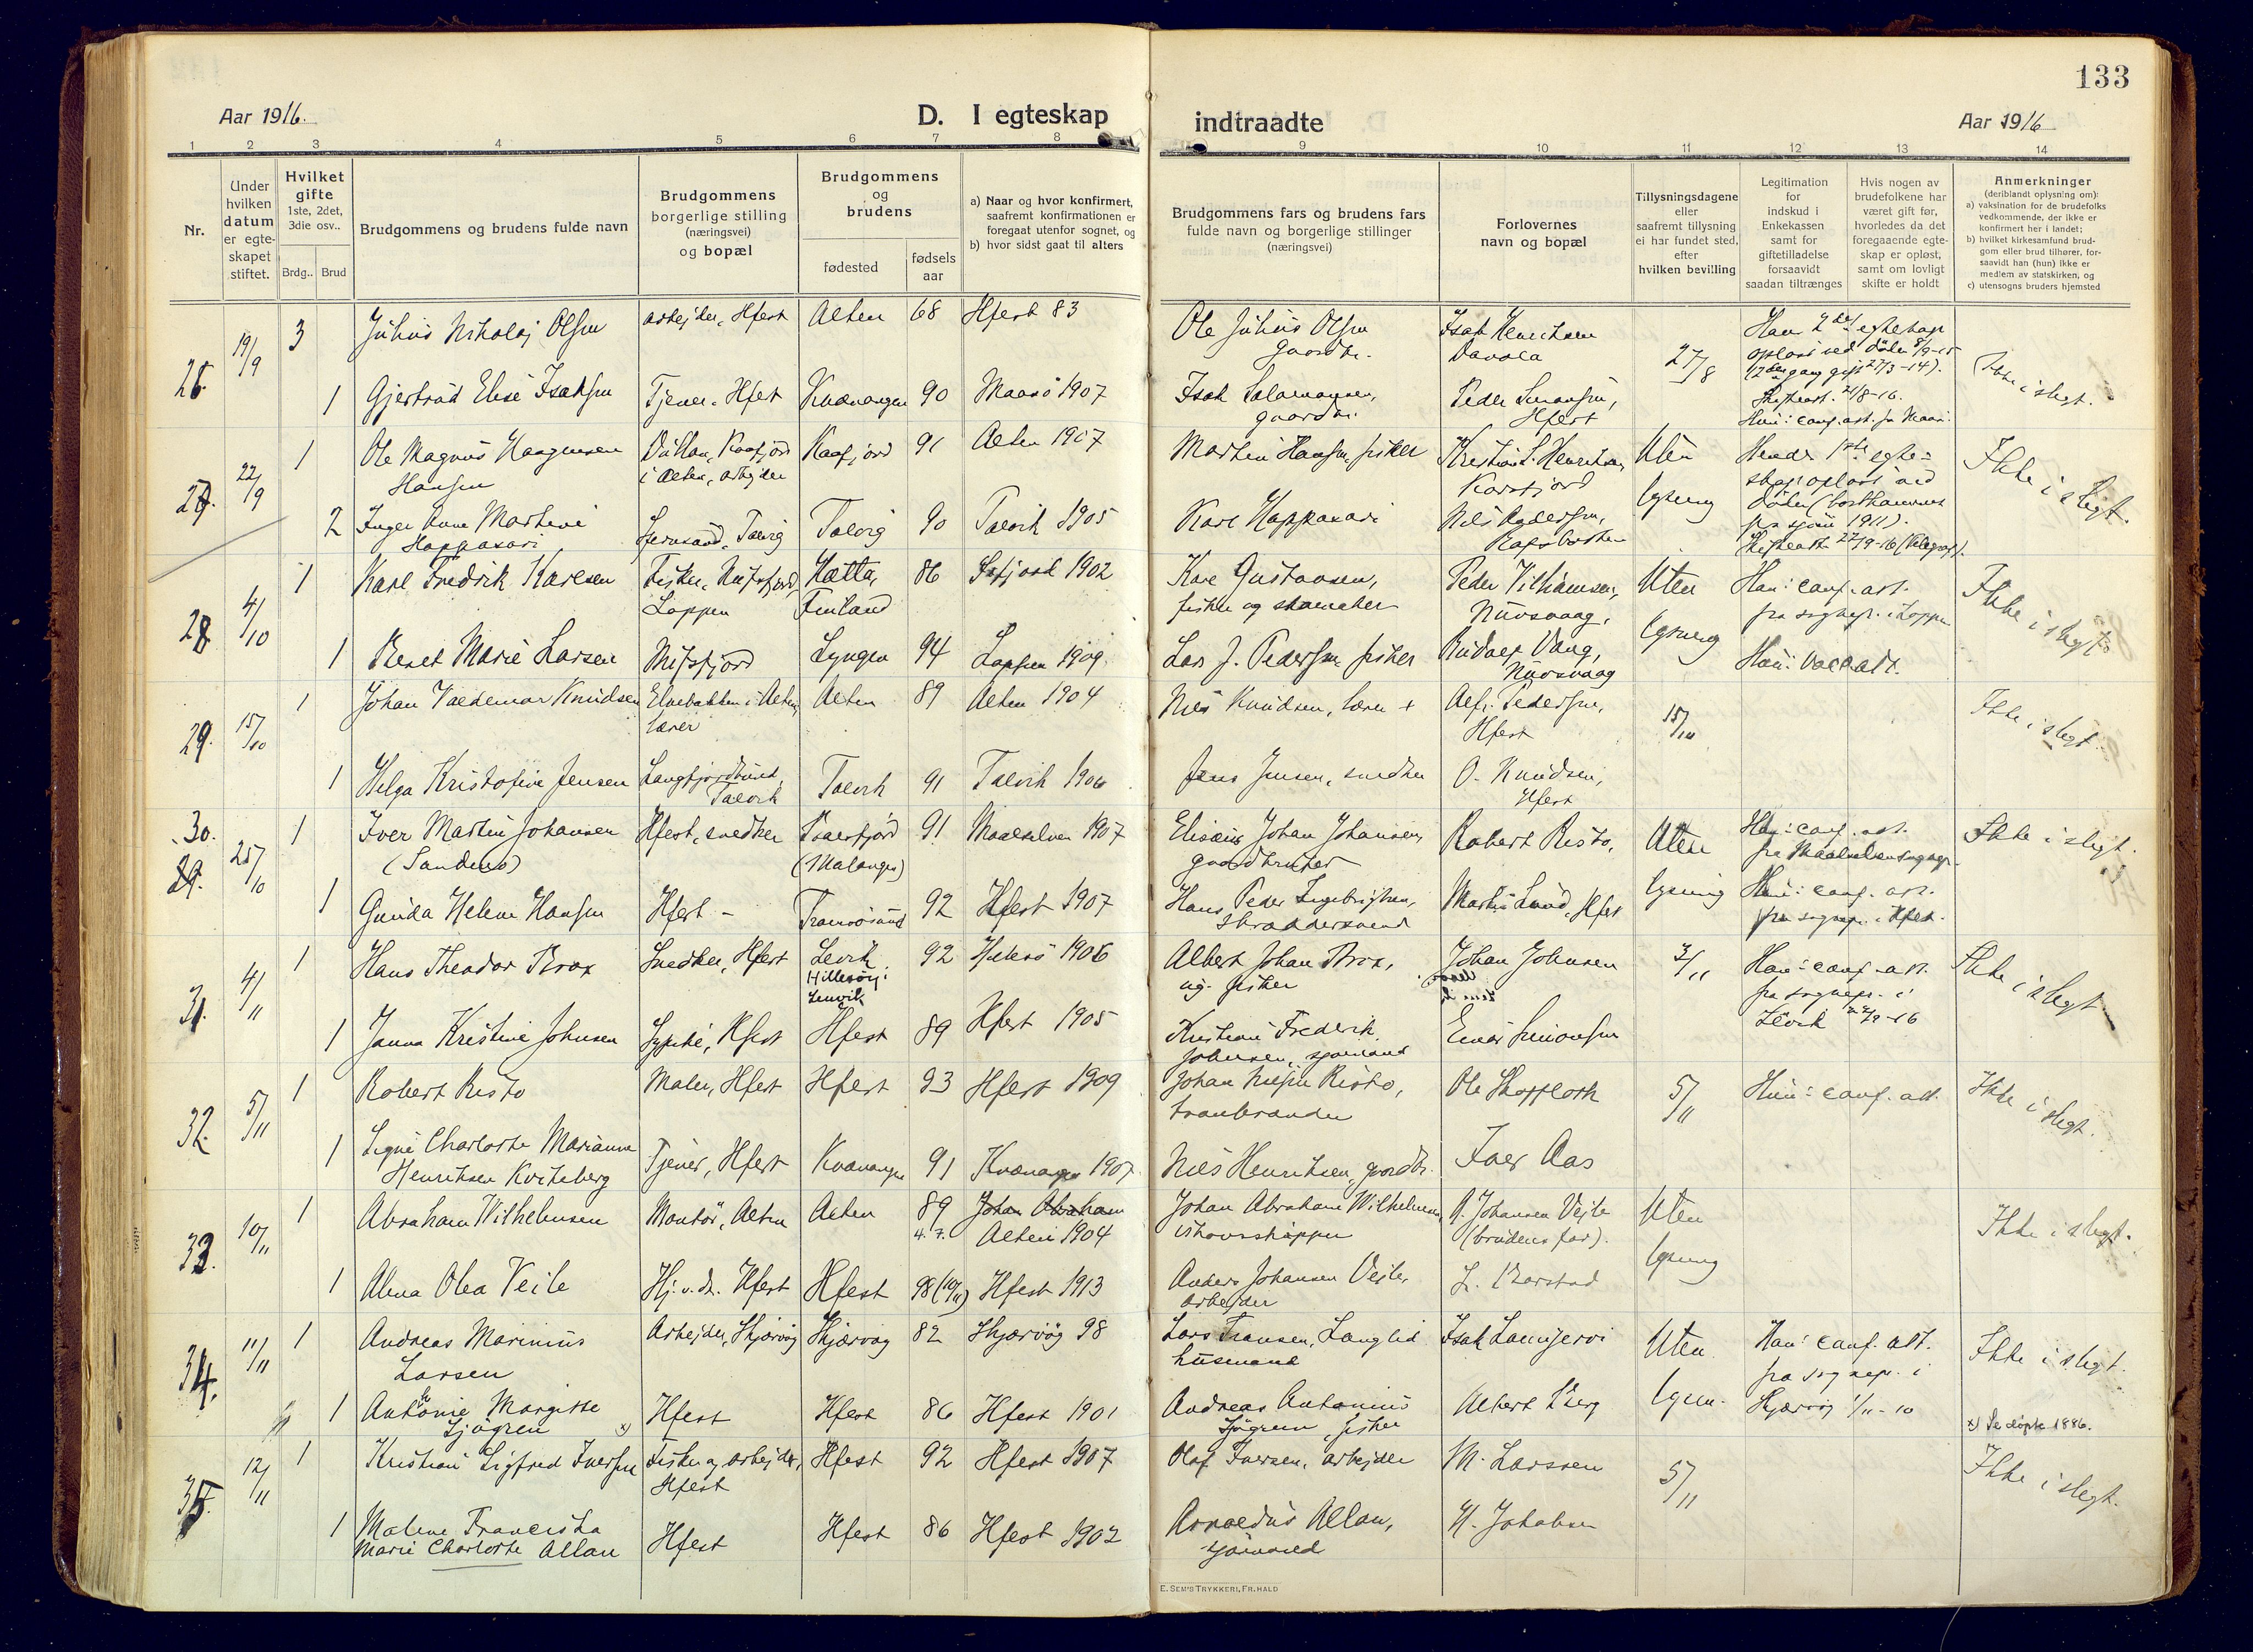 133
Aar 1916.
D. I egteskap
indtraadte
Aar 1916
1 2 3 4 5 6 7 8 9 10 11 12 13 14
Nr.
Under
hvilken
datum
er egte-
skapet
stiftet.
Hvilket
gifte
1ste, 2det,
3die osv..
Brdg.. Brud
Brudgommens og brudens fulde navn
Brudgommens
borgerlige stilling
(næringsvei)
og bopæl
Brudgommens
og
brudens
fødested
fødsels
aar
a) Naar og hvor konfirmert,
saafremt konfirmationen er
foregaat utenfor sognet, og
b) hvor sidst gaat til alters
Brudgommens fars og brudens fars
fulde navn og borgerlige stillinger
(næringsvei)
Forlovernes
navn og bopæl
Tillysningsdagene
eller
saafremt tillysning
ei har fundet sted,
efter
hvilken bevilling
Legitimation
for
indskud i
Enkekassen
samt for
giftetilladelse
forsaavidt
saadan tiltrænges
Hvis nogen av
brudefolkene har
været gift før,
hvorledes da det
foregaaende egte-
skap er opløst,
samt om lovligt
skifte er holdt
Anmerkninger
(deriblandt oplysning om):
a) vaksination for de brudefolks
vedkommende, der ikke er
konfirmert her i landet;
b) hvilket kirkesamfund brud-
gom eller brud tilhører, for-
saavidt han (hun) ikke er
medlem av statskirken, og
c) utensogns bruders hjemsted
26. 19/9 3 Julius Nikolaj Olsen arbejder, Hfest Alten 68 Hfest 83
Ole Julius Olsen
gaardbr.
Isak Henriksen
27/8
Han: 2det egteskap
opløst ved døden 8/9-15
(2den gang gift 27/3-14).
Skifteatt. 21/8-16.
Hun: conf. att. fra Maasø.
Ikke i slegt.
1 Gjertrud Elise Isaksen Tjener, Hfest Kvænangen 90 Maasø 1907
Isak Salamonsen,
gaardbr.
Peder Simonsen,
Hfest
27. 22/9 1 Ole Magnus Haagensen
Hansen
Kaafjord
i Alten, arbejder
Kaafjord 91 Alten 1907
Martin Hansen, fisker
Kristian L. Henriksen,
Uten
lysning
Hendes 1ste egte-
skap opløst ved
døden (bortkommet
paa sjøen 1911).
Skifteatt. 22/9-16
Ikke i slegt.
2 Inger Anne Martine
Happasari
Talvig
Talvig 90 Talvik 1905
Karl Happasari
Nils
28. 4/10 1 Karl Fredrik Karlsen Fisker, Nufsfjord,
Loppen
Hætta,
Finland
86 1902
Karl Gustavsen,
fisker og skomaker
Peder Vilhamsen,
Nuvsvaag,
Uten
lysning
Han: conf. att.
fra sognepr. i Loppen
Hun: Vacc. att.
Ikke i slegt
1 Beret Marie Larsen Nufsfjord Lyngen 94 Loppen 1909
Lars J. Pedersen, fisker
Rudolf Vang,
Nuvsvaag
29. 15/10 1 Johan Valdemar Knudsen Elvebakken i Alten,
lærer
Alten 89 Alten 1904
Nils Knudsen, lærer +
Alf. Pedersen,
Hfest
15/10
Ikke i slegt.
1 Helga Kristofine Jensen Langfjordbund,
Talvik
Talvik 91 Talvik 1906
Jens Jensen, snedker
O. Knudsen,
Hfest
30.
29. 25/10 1 Iver Martin Johansen
(Sandmo)
Hfest, snedker
(Malangen)
91 Maalselven 1907
Elisæus Johan Johansen,
gaardbruker
Robert Risto,
Uten
lysning
Han: conf. att.
fra Maalselven sognepr.
Hun: conf. att.
fra sognepr. i Hfest.
Ikke i slegt.
1 Gunda Helene Hansen Hfest - Tromsøsund 92 Hfest 1907
Hans Peder Ingebrigtsen,
skræddersvend
Martin Lund, Hfest
31. 4/11 1 Hans Theodor Brox Snedker, Hfest Lenvik
Hillesøy i
Lenvik
92 Hillesø 1906
Albert Johan Brox,
ug. fisker
Johan Johnsen
3/11
Han: conf. att.
fra sognepr. i
29/9-16
Ikke i slegt
1 Janna Kristine Johnsen Sypike, Hfest Hfest 89 Hfest 1905
Kristian Frederik
Johnsen, sjømand
Einar Simonsen
32. 5/11 1 Robert Risto Maler, Hfest Hfest 93 Hfest 1909
Johan Nilsen Risto,
tranbrænder
Ole Skopfloth
5/11
Hun: conf. att.
Ikke i slegt.
1 Signe Charlotte Marianne
Henriksen Kviteberg
Tjener, Hfest Kvænangen 91 Kvænangen 1907.
Nils Henriksen, gaardbr.
Iver Aas
33. 10/11 1 Abraham Wilhelmsen Montør, Alten Alten 89
4.7.
Johan Abraham
Alten 1904
Johan Abraham Wilhelmsen,
ishavsskipper
A. Johansen Vejle
(brudens far).
Uten
lysning
Ikke i slegt.
1 Alma Olea Veile Hj. v. dr. Hfest Hfest 98 (10/11) Hfest 1913
Anders Johansen Vejle,
arbejder
L. Barstad
34. 11/11 1 Andreas Marinius
Larsen
Arbejder, Skjærvøy Skjærvøy 82 Skjærvøy 98
Lars Fransen, Langlid
husmand
Isak Lamjervi
Uten
lysn.
Han: conf. att.
fra sognepr. i
Skjærvøy 1/11-10
Ikke i slegt.
1 Antonie Margitte
Sjøgren x)
Hfest Hfest 86 Hfest 1901
Andreas Antonius
Sjøgren, fisker
Albert Berg
x) Se døpte 1886.
35. 12/11 1 Kristian Sigfred Iversen Fisker og arbejder,
Hfest
Hfest 92 Hfest 1907
Olaf Iversen, arbejder
M. Larssen
5/11
Ikke i slegt.
1 Malene Franciska
Marie Charlotte Allan
Hfest Hfest 86 Hfest 1902
Arnoldus Allan,
sjømand
H. Johansen
E. SEM'S TRYKKERI, FR.HALD